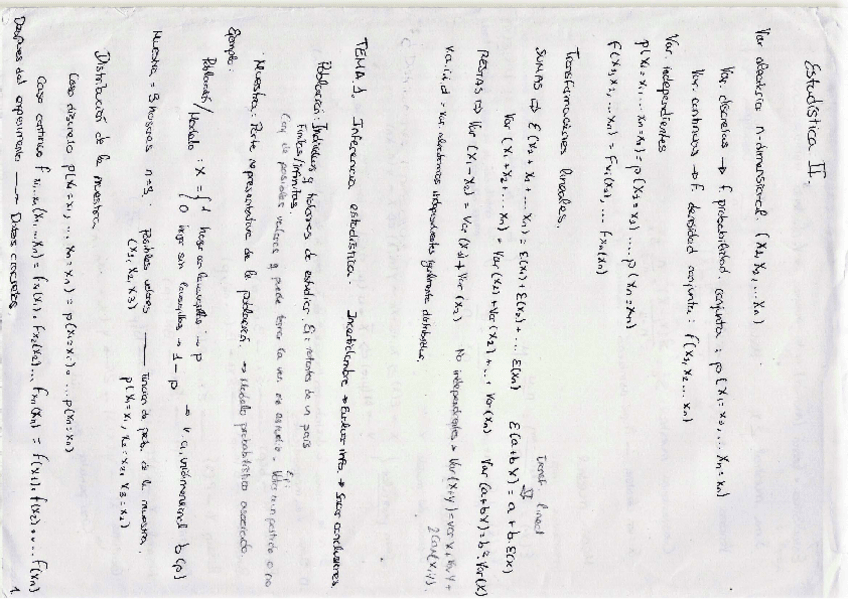 Estadística II.
Var aleatoria n-dimensional. (x1, x2, ... xn)
Var. discretas → f. probabilidad conjunta: p(x1=x1, ... xn=xn)
Var. continuas → f. densidad conjunta: f(x1, x2 ... xn)
Var. independientes
p(x1=x1, ... xn=xn) = p(x1=x1) .... p(xn=xn)
f(x1, x2, ... xn) = fx1(x1), ... fxn(xn)
Transformaciones lineales.
transf. lineal
SUMAS ⇒ E(x1+x2+ ... xn) = E(x1)+E(x2)+ ... E(xn) E(a+bX) = a+b.E(X)
Var(x1+x2+ ... xn) = Var(x1)+Var(x2)+ ... Var(xn) Var(a+bX)=b².Var(X)
RESTAS ⇒ Var(x1-x2) = Var(x1)+Var(x2) No independientes ⇒ Var(x+y)=Var x+Var y+
2Cov(x,y).
v.a.i.i.d = var. aleatorias independientes igualmente distribuidas.
TEMA 1. Inferencia estadística. Incertidumbre → Evaluar info. → Sacar conclusiones.
Población: Individuos y valores de estudio. Ej: votantes de un país
Finitas/infinitas
Conj. de posibles valores q puede tomar la var. en estudio. Ej: Votar a un partido o no
Muestra: Parte representativa de la población. → Modelo probabilístico asociado.
Ejemplo:
Población/Modelo: X = { 1 hogar con lavavajillas → p
0 hogar sin lavavajillas → 1-p → v.a. unidimensional b(p)
Muestra = 3 hogares n=3. Posibles valores —— Función de prob. de la muestra.
(x1, x2, x3) p(x1=x1, x2=x2, x3=x3)
Distribución de la muestra
Caso discreto p(x1=x1, ... xn=xn) = p(x1=x1). .... p(xn=xn)
Caso continuo f x1...xn(x1...xn) = fx1(x1). fx2(x2)... fxn(xn) = f(x1). f(x2) .... f(xn)
Después del experimento → Datos concretos.
1